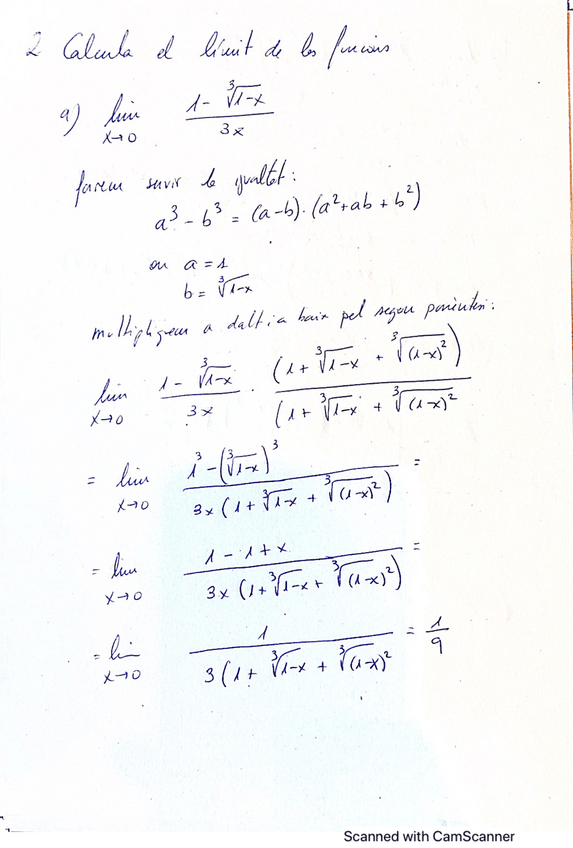 2 Calcula el límit de les funcions
a) lim x→0 (1 - ∛(1-x)) / 3x
farem servir la igualtat:
a³ - b³ = (a-b)·(a²+ab+b²)
on a = 1
b = ∛(1-x)
multipliquem a dalt i a baix pel segon parèntesi:
lim x→0 (1 - ∛(1-x)) / 3x · (1 + ∛(1-x) + ∛((1-x)²)) / (1 + ∛(1-x) + ∛((1-x)²)
= lim x→0 (1³ - (∛(1-x))³) / 3x (1 + ∛(1-x) + ∛((1-x)²)) =
= lim x→0 (1 - 1 + x) / 3x (1 + ∛(1-x) + ∛((1-x)²)) =
= lim x→0 1 / 3 (1 + ∛(1-x) + ∛((1-x)²) = 1/9
Scanned with CamScanner